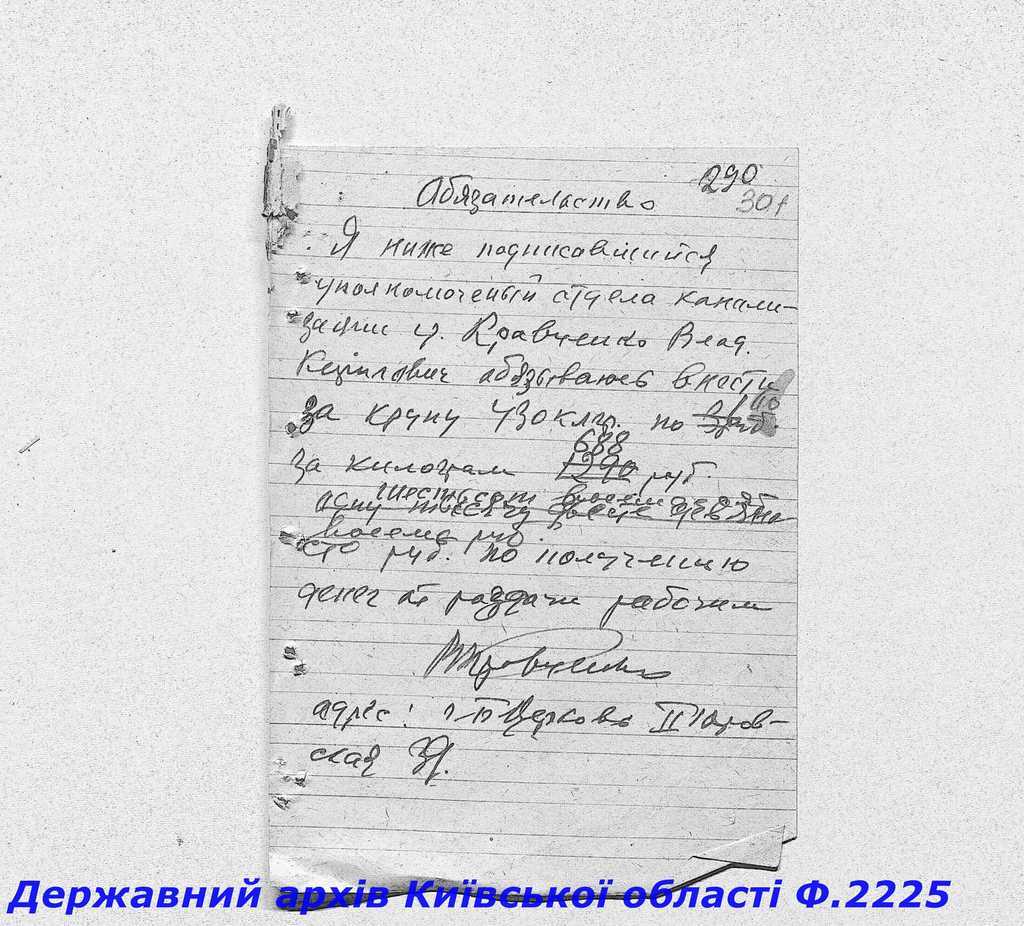 290
301
Обязательство
Я ниже подписавшийся
уполномоченый отдела канали-
зации гр. Кравченко Влад.
обязываюсь внести
за крупу 430 клгр. по
688
за килограм 1290 руб.
шестьсот восемдесят
одну тысячу двесте девяно
восемь руб.
сто руб. по получению
денег от раздачи рабочим
ВКравченко
адрес: г. Б Церковь II
ская
Державний архів Київської області Ф.2225